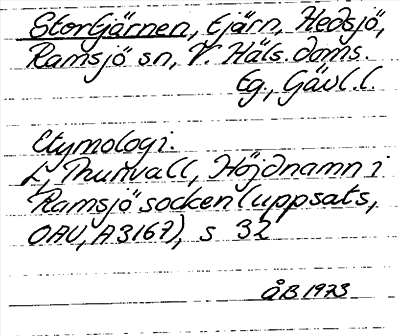 Stortjärnen, tjärn, Hedsjö,
Ramsjö sn, V. Häls. doms.
Eg., Gävl. l.
Etymologi.
L, Thunvall, Höjdnamn i
Ramsjö socken (uppsats,
OAU, A3167), s 32
ÅB 1973